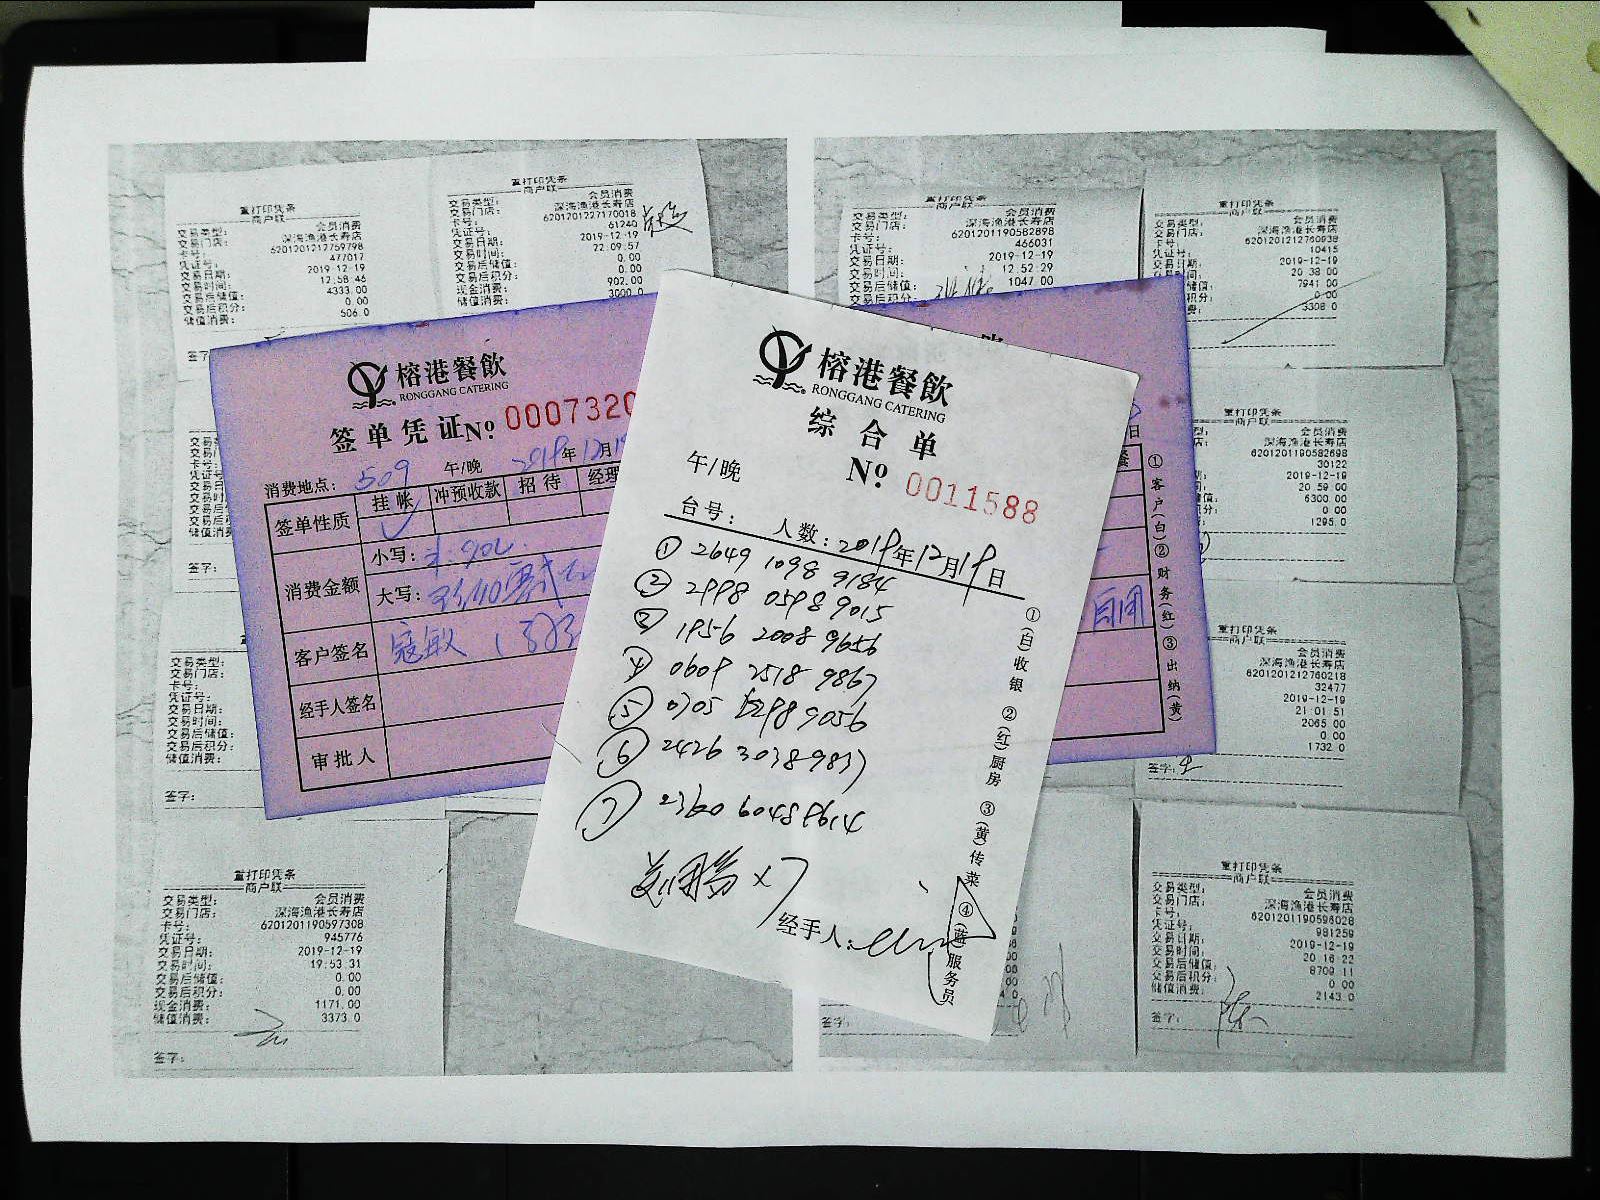 重打印凭条
商户联
交易类型: 会员消费
交易门店: 深海渔港长寿店
卡号: 6201201212759798
凭证号: 477017
交易日期: 2019-12-19
交易时间: 12:58:46
交易后储值: 4333.00
交易后积分: 0.00
储值消费: 506.0
签字
重打印凭条
商户联
交易类型: 会员消费
交易门店: 深海渔港长寿店
卡号: 6201201227170018
凭证号: 61240
交易日期: 2019-12-19
交易时间: 22:09:57
交易后储值: 0.00
交易后积分: 0.00
现金消费: 902.00
储值消费: 3000.0
重打印凭条
商户联
交易类型: 会员消费
交易门店: 深海渔港长寿店
卡号: 6201201190582898
凭证号: 466031
交易日期: 2019-12-19
交易时间: 12:52:29
交易后储值: 1047.00
交易后积分:
重打印凭条
商户联
交易类型: 会员消费
交易门店: 深海渔港长寿店
卡号: 6201201212760938
凭证号: 10415
交易日期: 2019-12-19
时间: 20:38:00
储值: 7941.00
积分: 0.00
费: 3308.0
榕港餐飲
RONGGANG CATERING
签单凭证 No: 0007320
消费地点: 509 午/晚 2019年12月19
签单性质 挂帐 冲预收款 招待 经理
消费金额 小写:
大写:
客户签名 寇敏
经手人签名
审批人
榕港餐飲
RONGGANG CATERING
综合单
午/晚 No: 0011588
台号: 人数: 2019年12月19日
① 2649 1098 9184
② 2998 0598 9015
③ 1956 2008 9656
④ 0609 2518 9867
⑤ 0705 9056
⑥ 2426 3038 9837
⑦ 2360 6048 8614
×7
经手人:
①(白)收银 ②(红)厨房 ③(黄)传菜 ④(蓝)服务员
日
①客户(白) ②财务(红) ③出纳(黄)
重打印凭条
会员消费
深海渔港长寿店
6201201190582698
30122
2019-12-19
20:59:00
储值: 6300.00
积分: 0.00
1295.0
交易
交易门
卡号
凭证号
交易日
交易时
交易后
交易后
储值消
签字:
交易类型:
交易门店:
卡号:
凭证号:
交易日期:
交易时间:
交易后储值:
交易后积分:
储值消费:
签字:
重打印凭条
商户联
会员消费
深海渔港长寿店
6201201212760218
32477
2019-12-19
21:01:51
2065.00
0.00
1732.0
签字:
重打印凭条
商户联
交易类型: 会员消费
交易门店: 深海渔港长寿店
卡号: 6201201190597308
凭证号: 945776
交易日期: 2019-12-19
交易时间: 19:53:31
交易后储值: 0.00
交易后积分: 0.00
现金消费: 1171.00
储值消费: 3373.0
签字:
签字:
重打印凭条
商户联
交易类型: 会员消费
交易门店: 深海渔港长寿店
卡号: 6201201190596028
凭证号: 981259
交易日期: 2019-12-19
交易时间: 20:16:22
交易后储值: 8709.11
交易后积分: 0.00
储值消费: 2143.0
签字: